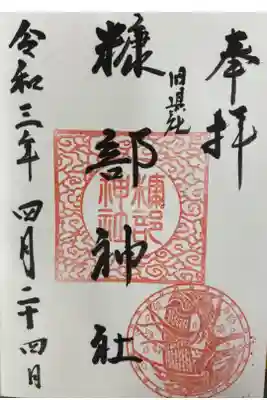 奉拝
旧県社
糠部神社
糠部神社
令和三年四月二十四日